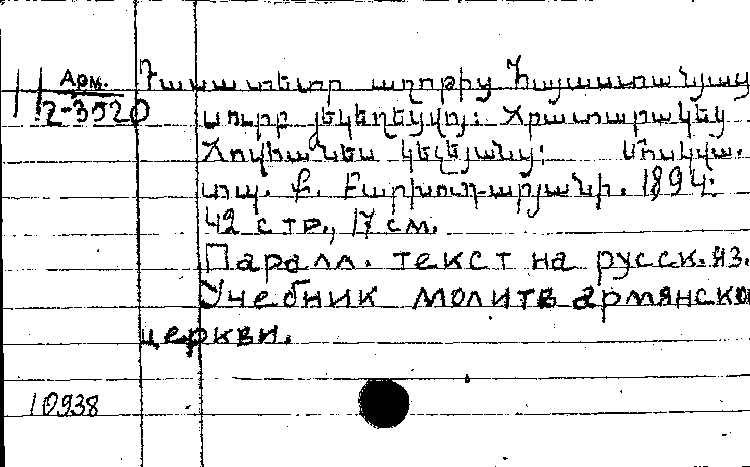 Арм.
12-3520
Դասատետր աղոթից Հայաստանյայց
սուրբ յեկեղեցվոյ: Հրատարակեց
Հովհաննես կելեյանց: Մոսկվա.
տպ. Բ. Բարխուդարյանի. 1894:
42 стр., 17 см.
Паралл. текст на русск. яз.
Учебник молитв армянской
церкви.
10938